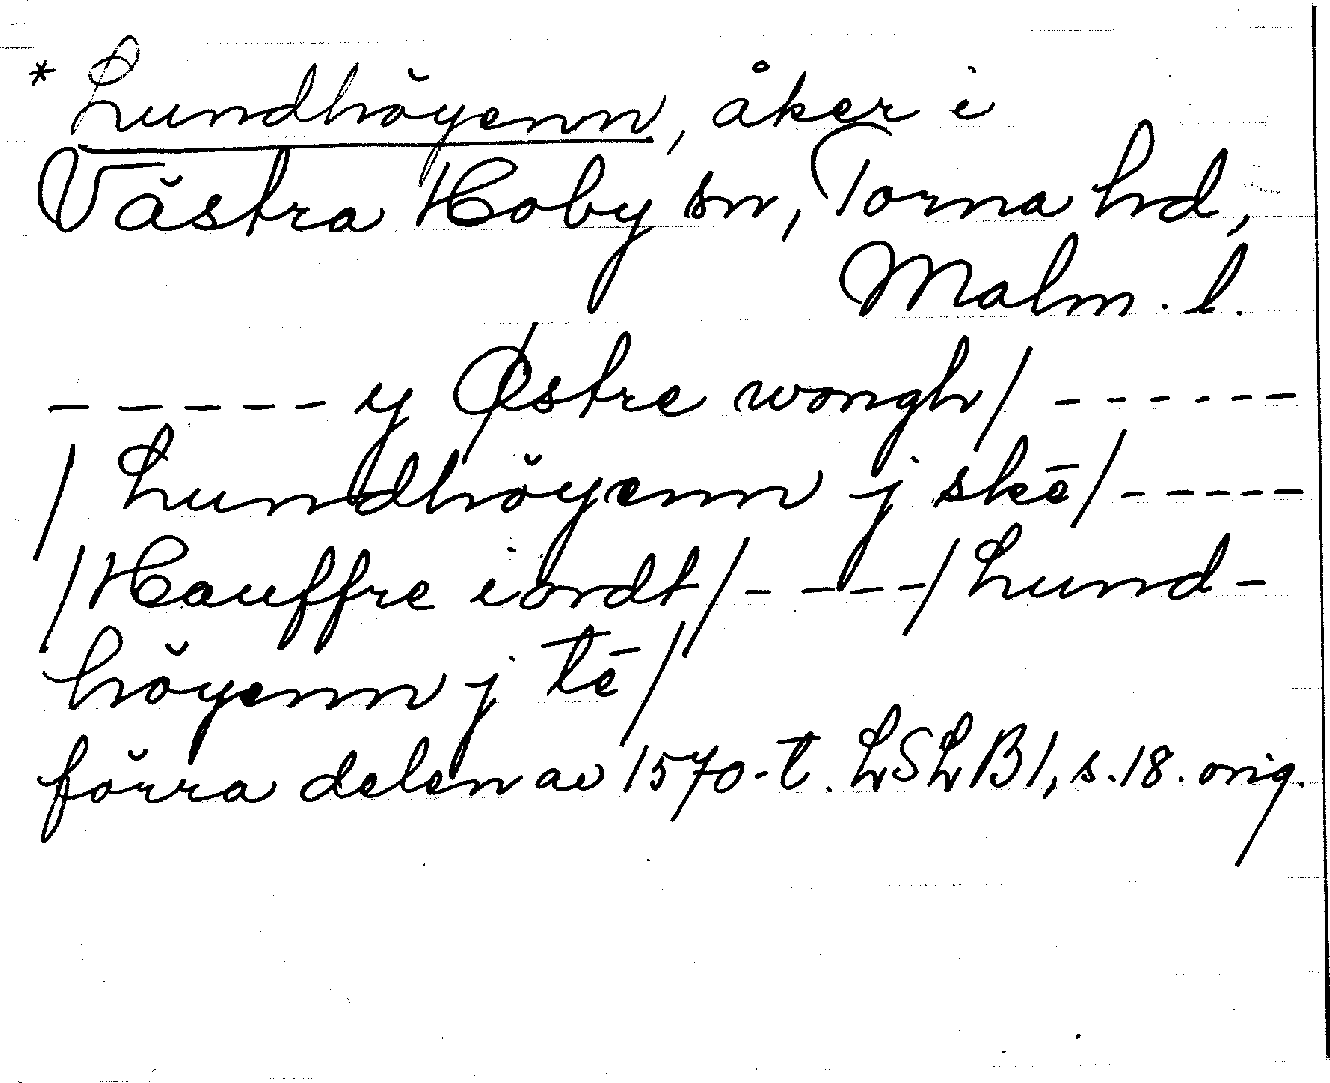 * Lundhöyenn, åker i
Västra Hoby sn, Torna hd,
Malm. l.
----- y Østre wongh/ ------
/ Lundhöyenn j skē/ -----
/ Hauffre iordt/ ----/ Lund-
höyenn j tē/
förra delen av 1570-t. LSLB1, s.18. orig.